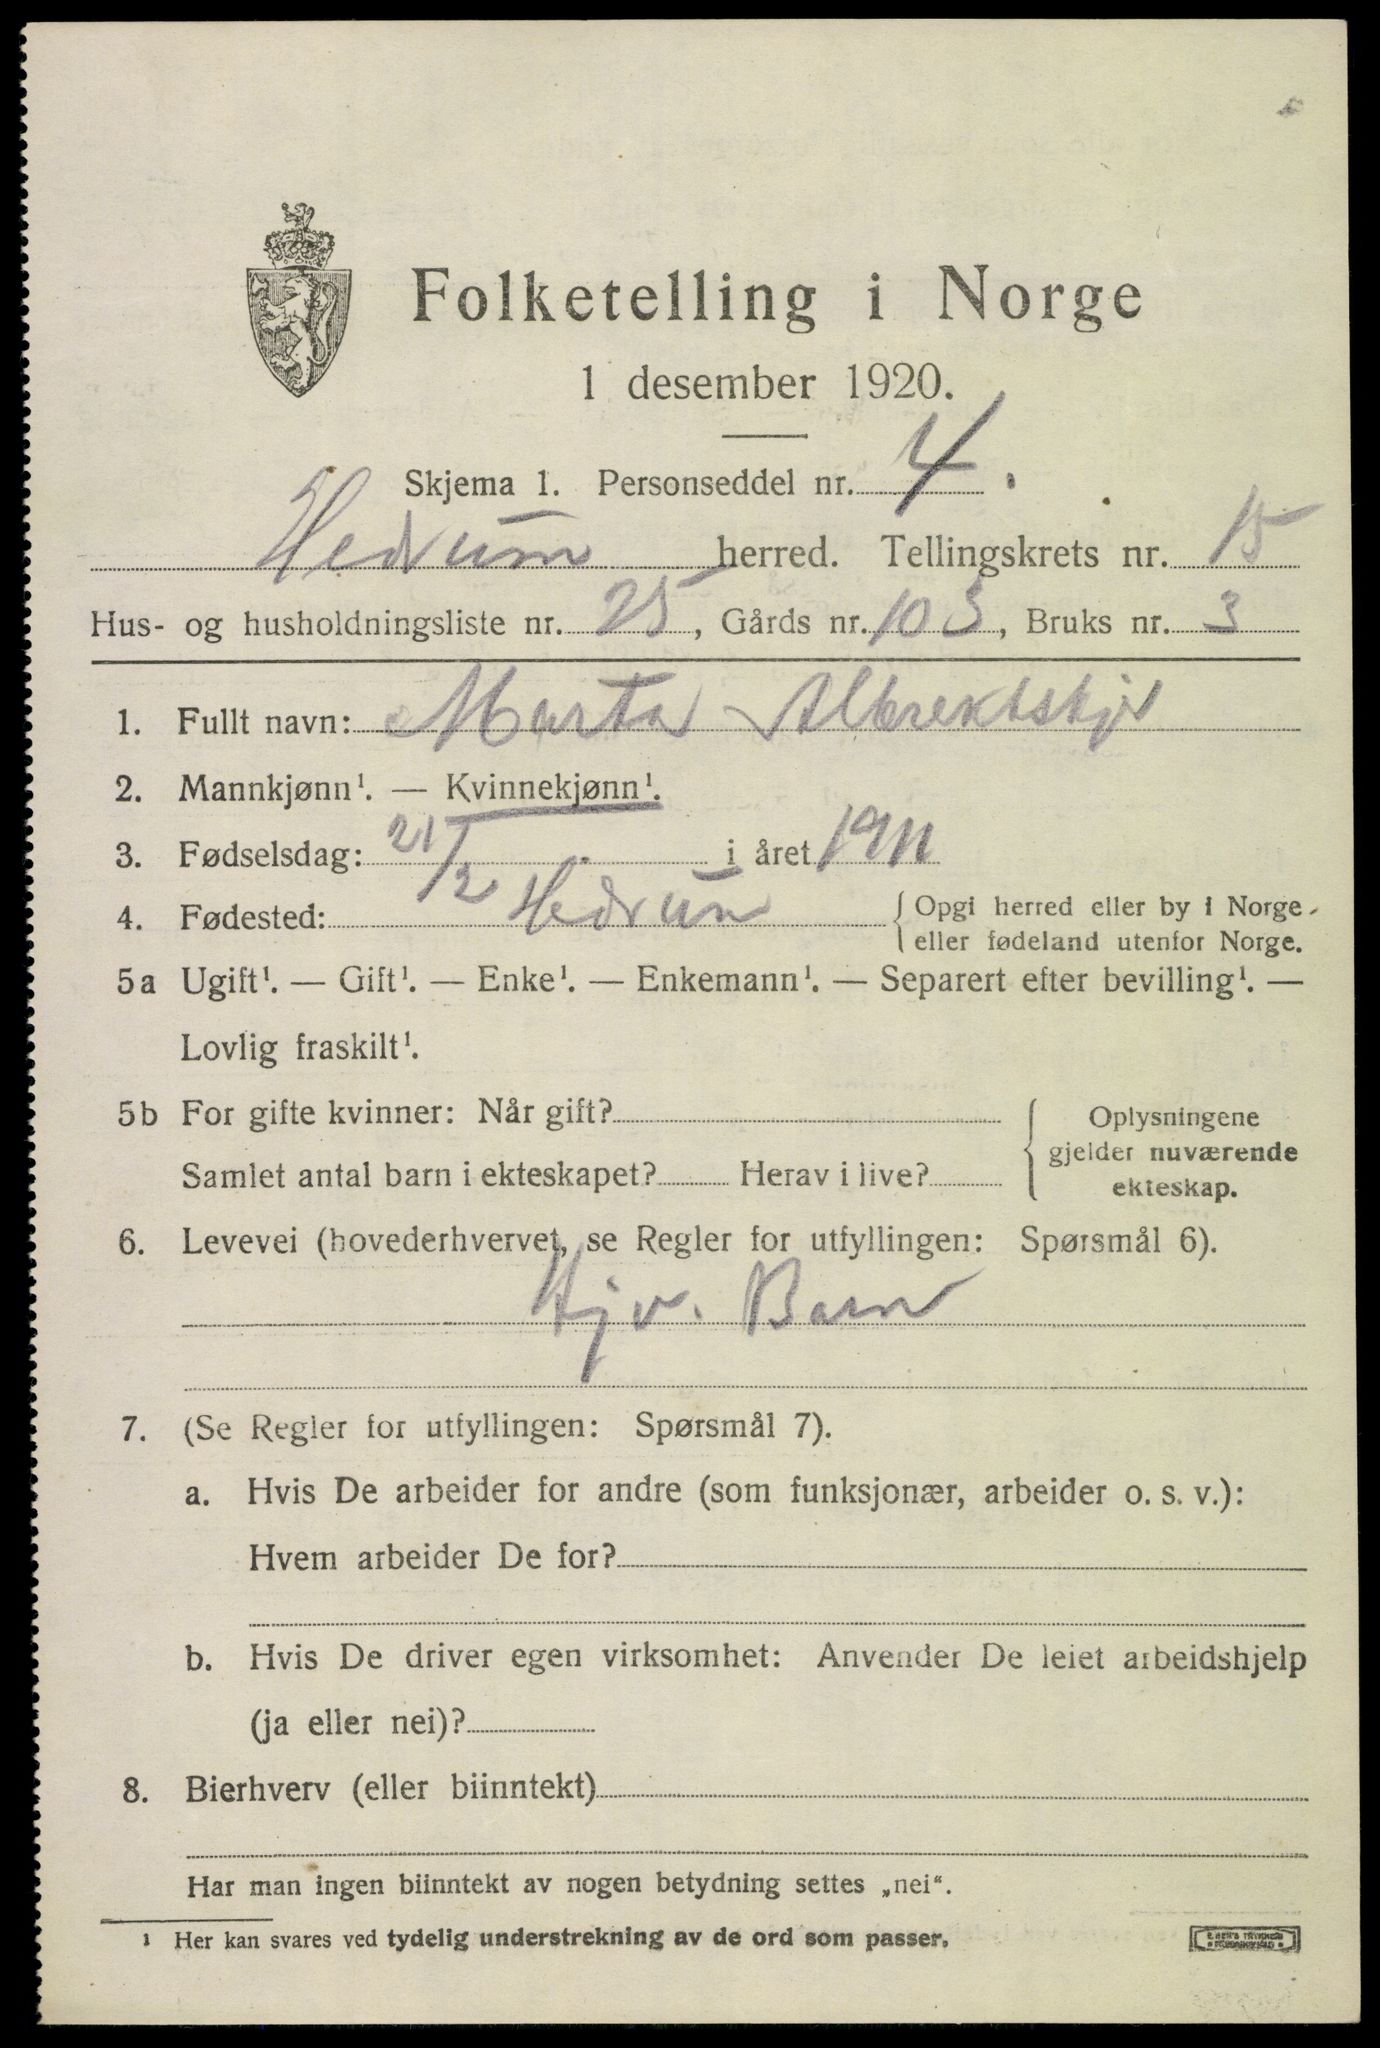 Folketelling i Norge
1 desember 1920.
Skjema 1. Personseddel nr. 4.
Hedrum herred. Tellingskrets nr. 15
Hus- og husholdningsliste nr. 25, Gårds nr. 103, Bruks nr. 3
1. Fullt navn: Marta Albrektskjr
2. Mannkjønn¹. — Kvinnekjønn¹.
3. Fødselsdag: 21/2 i året 1911
4. Fødested: Hedrum { Opgi herred eller by i Norge
eller fødeland utenfor Norge.
5a Ugift¹. — Gift¹. — Enke¹. — Enkemann¹. — Separert efter bevilling¹. —
Lovlig fraskilt¹.
5b For gifte kvinner: Når gift? { Oplysningene
gjelder nuværende
Samlet antal barn i ekteskapet? Herav i live?
ekteskap.
6. Levevei (hovederhvervet, se Regler for utfyllingen: Spørsmål 6).
Hjv. Barn
7. (Se Regler for utfyllingen: Spørsmål 7).
a. Hvis De arbeider for andre (som funksjonær, arbeider o. s. v.):
Hvem arbeider De for?
b. Hvis De driver egen virksomhet: Anvender De leiet arbeidshjelp
(ja eller nei)?
8. Bierhverv (eller biinntekt)
Har man ingen biinntekt av nogen betydning settes „nei“.
¹ Her kan svares ved tydelig understrekning av de ord som passer.